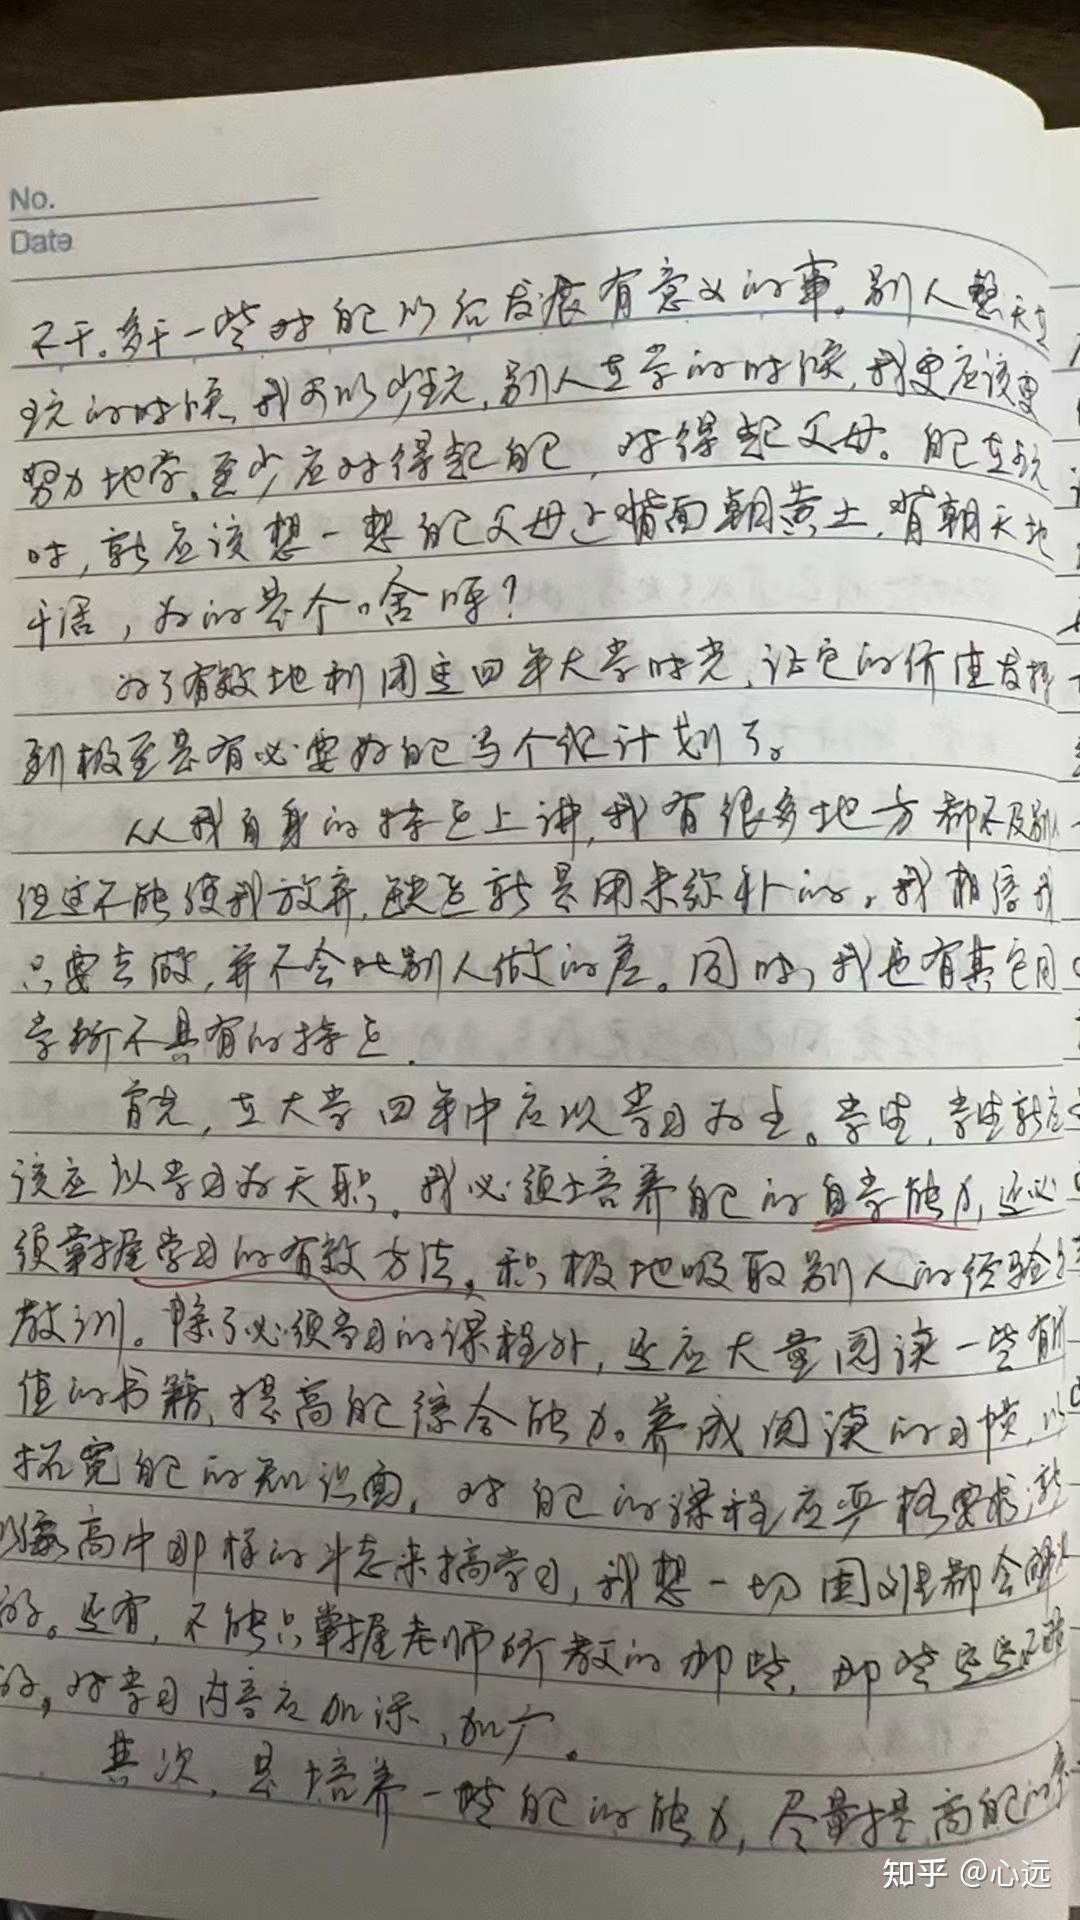 No.
Date
不干。多干一些对自己以后发展有意义的事。别人整天在
玩的时候,我可以少玩,别人在学的时候,我更应该更
努力地学。至少应对得起自己,对得起父母。自己在玩
时,就应该想一想自己父母正面朝黄土,背朝天地
干活,为的是个啥呀?
为了有效地利用这四年大学时光,让它的价值发挥
到极至是有必要好自己写个纪计划了。
从我自身的特点上讲,我有很多地方都不及别人
但这不能使我放弃,缺点就是用来弥补的,我相信我
只要去做,并不会比别人做的差。同时,我也有其它同
学所不具有的特点.
首先,在大学四年中应以学习为主。学生,学生就应
该应以学习为天职。我必须培养自己的自学能力,还必
须掌握学习的有效方法,积极地吸取别人的经验
教训。除了必须学习的课程外,还应大量阅读一些有价
值的书籍,提高自己综合能力。养成阅读的习惯,以
拓宽自己的知识面,对自己的课程应严格要求,就
以像高中那样的斗志来搞学习,我想一切困难都会解决
的。还有,不能只掌握老师所教的那些,那些是远不够
的,对学习内容应加深,加广。
其次,是培养一些自己的能力,尽量提高自己的
知乎 @心远